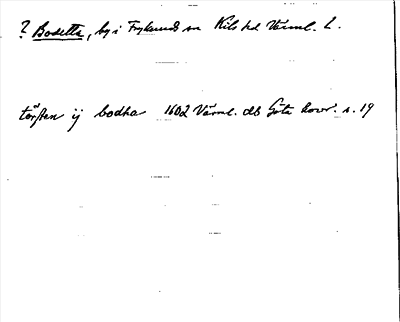 ? Bosetta, by i Fryksände sn Kils hd Värml. L.
torsten ij bodha 1602 Värml. db Göta hovr. s. 19